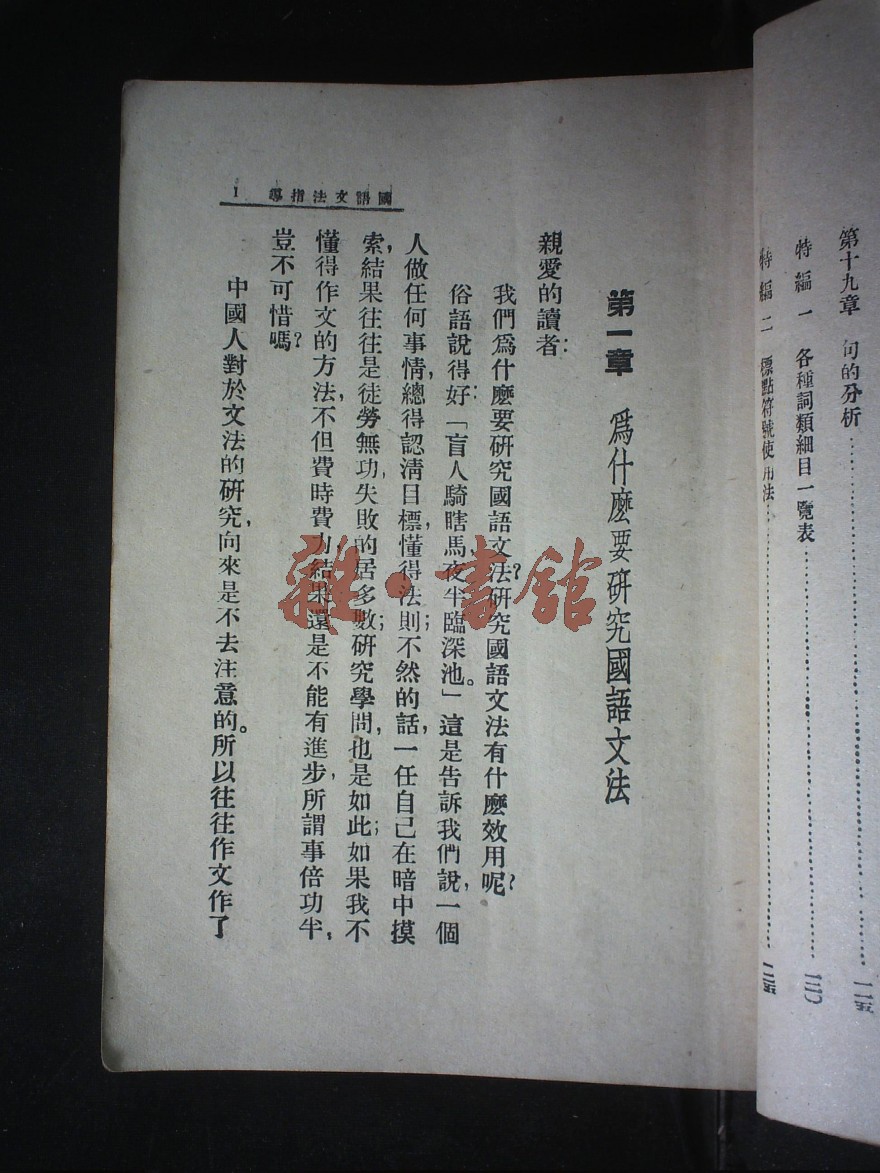 第十九章 句的分析…………一二五
特編一 各種詞類細目一覽表…………
特編二 標點符號使用法…………
國語文法指導 1
第一章 爲什麽要研究國語文法
親愛的讀者：
我們爲什麽要研究國語文法？研究國語文法有什麽效用呢？
俗語說得好：「盲人騎瞎馬、夜半臨深池。」這是告訴我們說，一個
人做任何事情，總得認清目標，懂得法則；不然的話，一任自己在暗中摸
索，結果往往是徒勞無功，失敗的居多數；研究學問，也是如此；如果我不
懂得作文的方法，不但費時費力，結果還是不能有進步，所謂事倍功半，
豈不可惜嗎？
中國人對於文法的研究，向來是不去注意的。所以往往作文作了
雜·書館